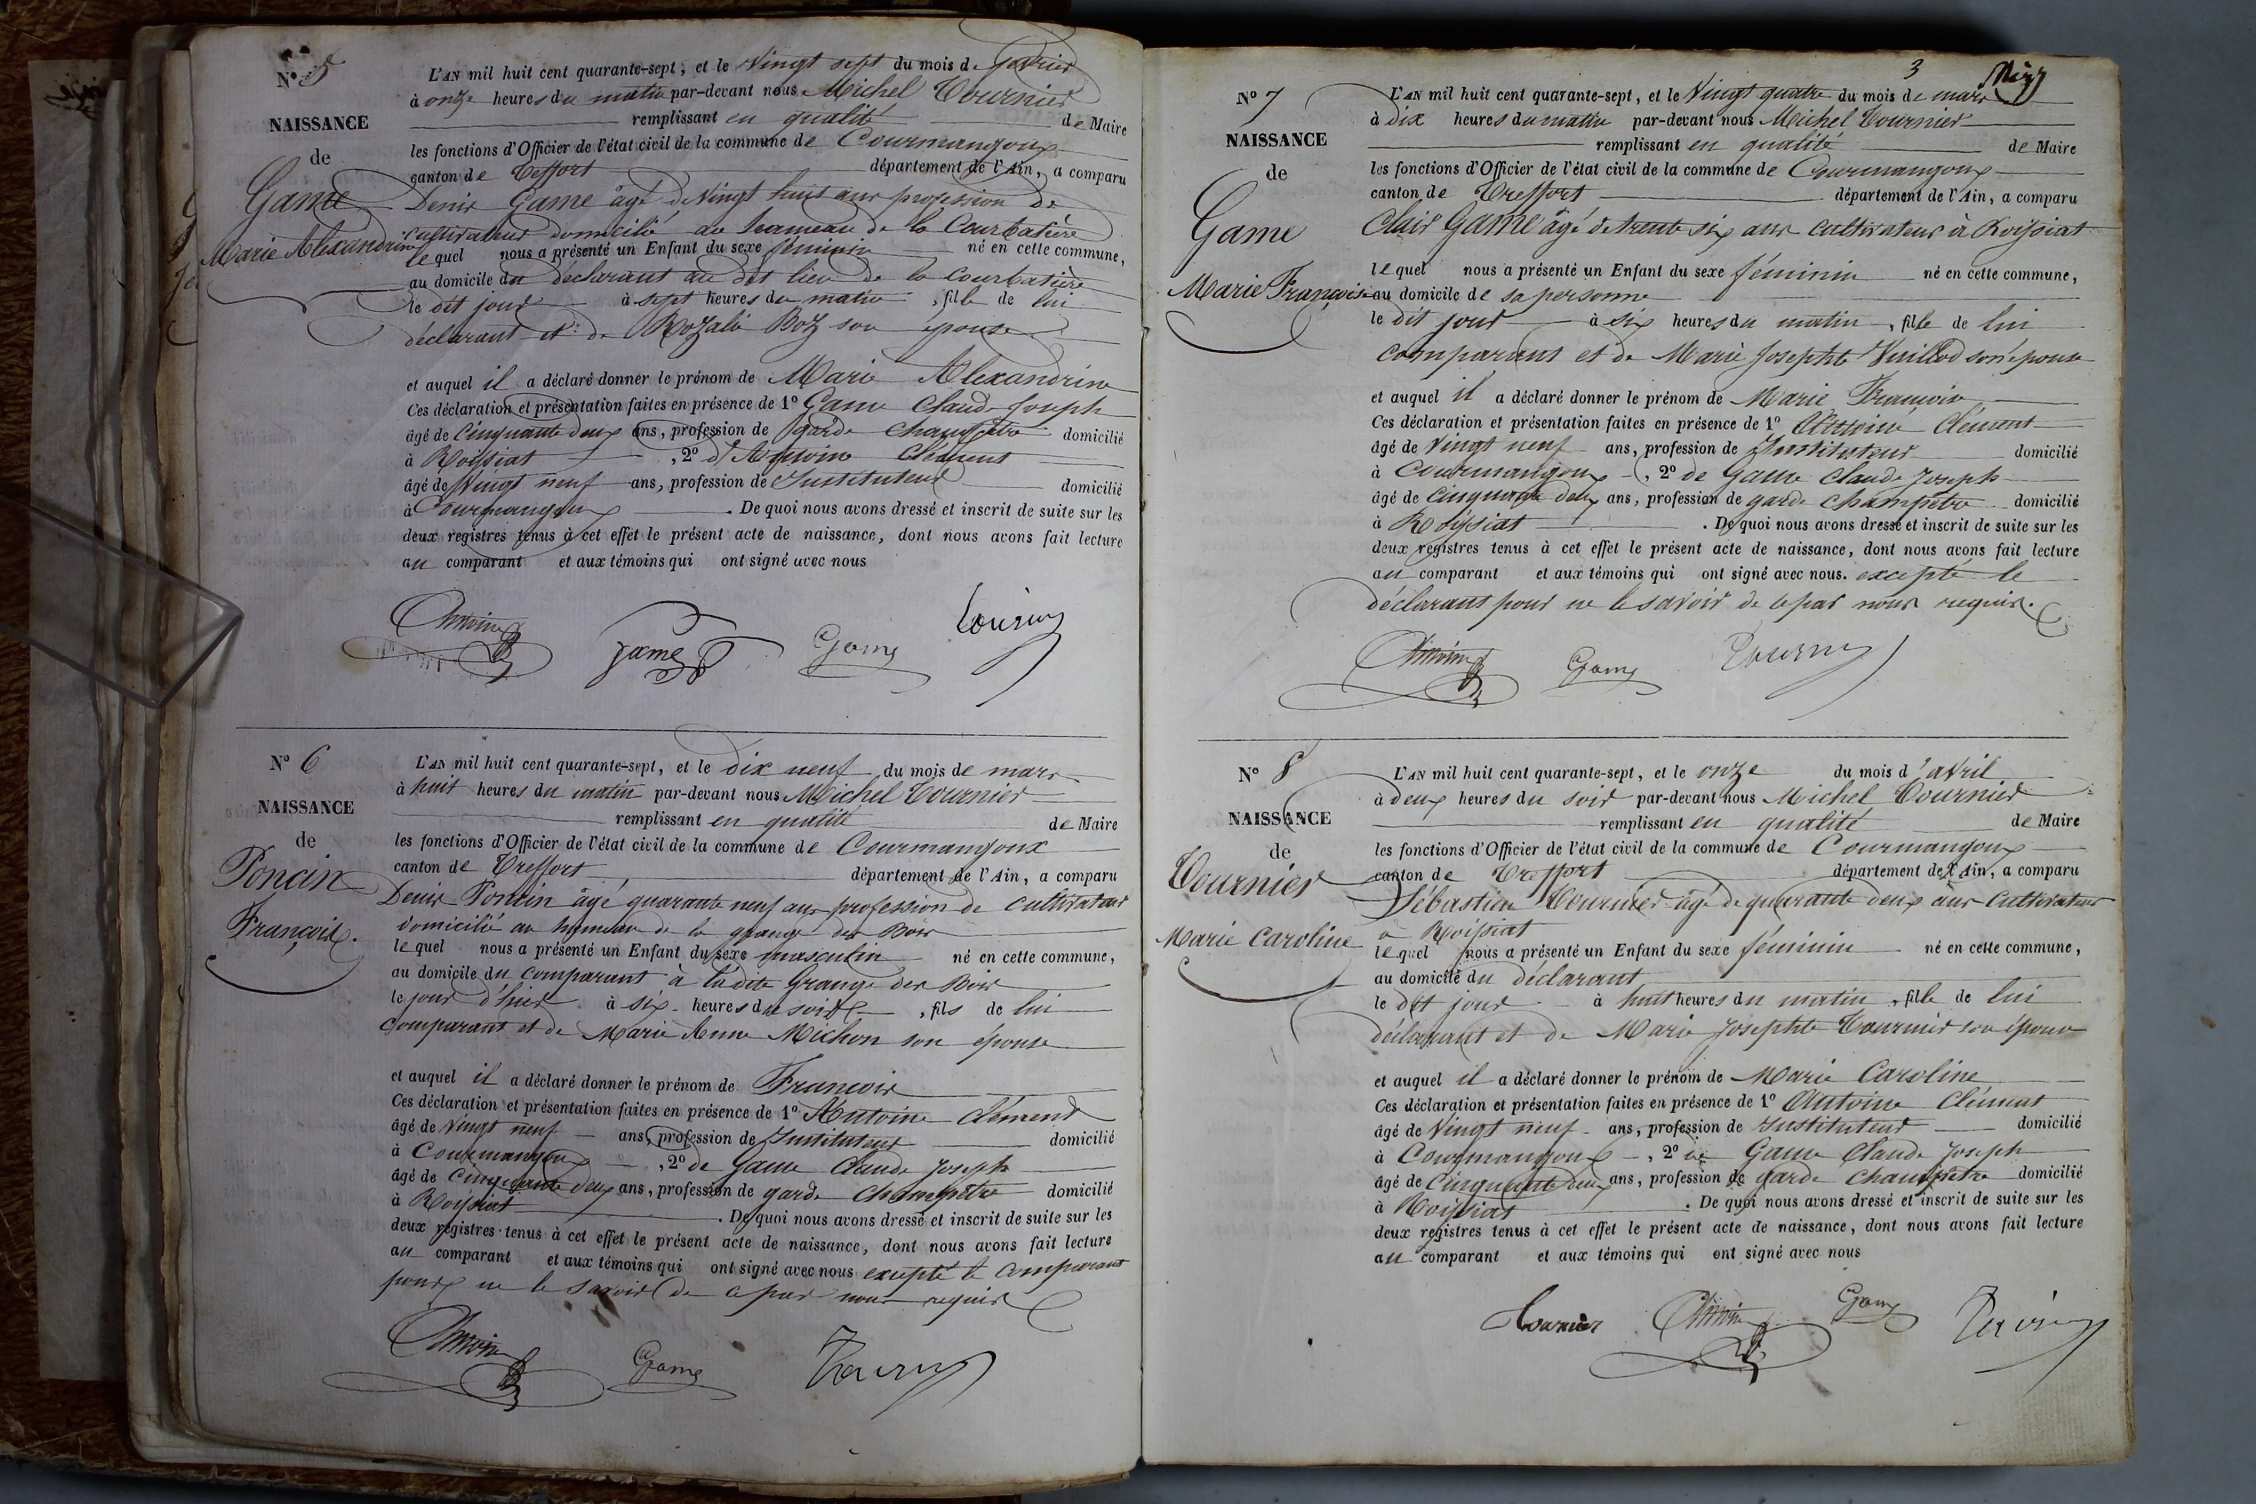 N° 5
NAISSANCE
de
Game
Marie Alexandrine
L'AN mil huit cent quarante-sept, et le Vingt sept du mois de
à onze heures du matin par-devant nous Michel Tournier
remplissant en qualité de Maire
les fonctions d'Officier de l'état civil de la commune de Courmangoux
canton de Treffort département de l'Ain, a comparu
Denis Game âgé de Vingt huit ans profession de
cultivateur domicilié au hameau de la Courbatière
lequel nous a présenté un Enfant du sexe féminin né en cette commune,
au domicile du déclarant au dit lieu de la Courbatière
le dit jour à sept heures du matin, fille de lui
déclarant et de Rozalie Boz son épouse
et auquel il a déclaré donner le prénom de Marie Alexandrine
Ces déclaration et présentation faites en présence de 1° Game Claude Joseph
âgé de cinquante deux ans, profession de garde champêtre domicilié
à Roissiat, 2° d'Antoine Clément
âgé de Vingt neuf ans, profession de Instituteur domicilié
à Courmangoux. De quoi nous avons dressé et inscrit de suite sur les
deux registres tenus à cet effet le présent acte de naissance, dont nous avons fait lecture
au comparant et aux témoins qui ont signé avec nous
Antoine Game Game Tournier
N° 6
NAISSANCE
de
Poncin
François.
L'AN mil huit cent quarante-sept, et le dix neuf du mois de mars
à huit heures du matin par-devant nous Michel Tournier
remplissant en qualité de Maire
les fonctions d'Officier de l'état civil de la commune de Courmangoux
canton de Treffort département de l'Ain, a comparu
Denis Poncin âgé quarante neuf ans profession de cultivateur
domicilié au hameau de la grange des Bois
lequel nous a présenté un Enfant du sexe masculin né en cette commune,
au domicile du comparant à ladite Grange des Bois
le jour d'hier à six heures du soir, fils de lui
comparant et de Marie Anne Michon son épouse
et auquel il a déclaré donner le prénom de François
Ces déclaration et présentation faites en présence de 1° Antoine Clément
âgé de Vingt neuf ans, profession de Instituteur domicilié
à Courmangoux, 2° de Game Claude Joseph
âgé de cinquante deux ans, profession de garde champêtre domicilié
à Roissiat. De quoi nous avons dressé et inscrit de suite sur les
deux registres tenus à cet effet le présent acte de naissance, dont nous avons fait lecture
au comparant et aux témoins qui ont signé avec nous excepté le comparant
pour ne le savoir de ce par nous requis
Antoine Game Tournier
3
N° 7
NAISSANCE
de
Game
Marie Françoise
L'AN mil huit cent quarante-sept, et le Vingt quatre du mois de mars
à dix heures du matin par-devant nous Michel Tournier
remplissant en qualité de Maire
les fonctions d'Officier de l'état civil de la commune de Courmangoux
canton de Treffort département de l'Ain, a comparu
Clair Game âgé de trente six ans cultivateur à Roissiat
lequel nous a présenté un Enfant du sexe féminin né en cette commune,
au domicile de sa personne
le dit jour à six heures du matin, fille de lui
comparant et de Marie Josephte Vuillod son épouse
et auquel il a déclaré donner le prénom de Marie Françoise
Ces déclaration et présentation faites en présence de 1° Antoine Clément
âgé de Vingt neuf ans, profession de Instituteur domicilié
à Courmangoux, 2° de Game Claude Joseph
âgé de cinquante deux ans, profession de garde champêtre domicilié
à Roissiat. De quoi nous avons dressé et inscrit de suite sur les
deux registres tenus à cet effet le présent acte de naissance, dont nous avons fait lecture
au comparant et aux témoins qui ont signé avec nous. excepté le
déclarant pour ne le savoir de ce par nous requis.
Antoine Game Tournier
N° 8
NAISSANCE
de
Tournier
Marie Caroline
L'AN mil huit cent quarante-sept, et le onze du mois d'avril
à deux heures du soir par-devant nous Michel Tournier
remplissant en qualité de Maire
les fonctions d'Officier de l'état civil de la commune de Courmangoux
canton de Treffort département de l'Ain, a comparu
Sébastien Tournier âgé de quarante deux ans cultivateur
à Roissiat
lequel nous a présenté un Enfant du sexe féminin né en cette commune,
au domicile du déclarant
le dit jour à huit heures du matin, fille de lui
déclarant et de Marie Josephte Tournier son épouse
et auquel il a déclaré donner le prénom de Marie Caroline
Ces déclaration et présentation faites en présence de 1° Antoine Clément
âgé de Vingt neuf ans, profession de Instituteur domicilié
à Courmangoux, 2° de Game Claude Joseph
âgé de cinquante deux ans, profession de garde champêtre domicilié
à Roissiat. De quoi nous avons dressé et inscrit de suite sur les
deux registres tenus à cet effet le présent acte de naissance, dont nous avons fait lecture
au comparant et aux témoins qui ont signé avec nous
Tournier Antoine Game Tournier